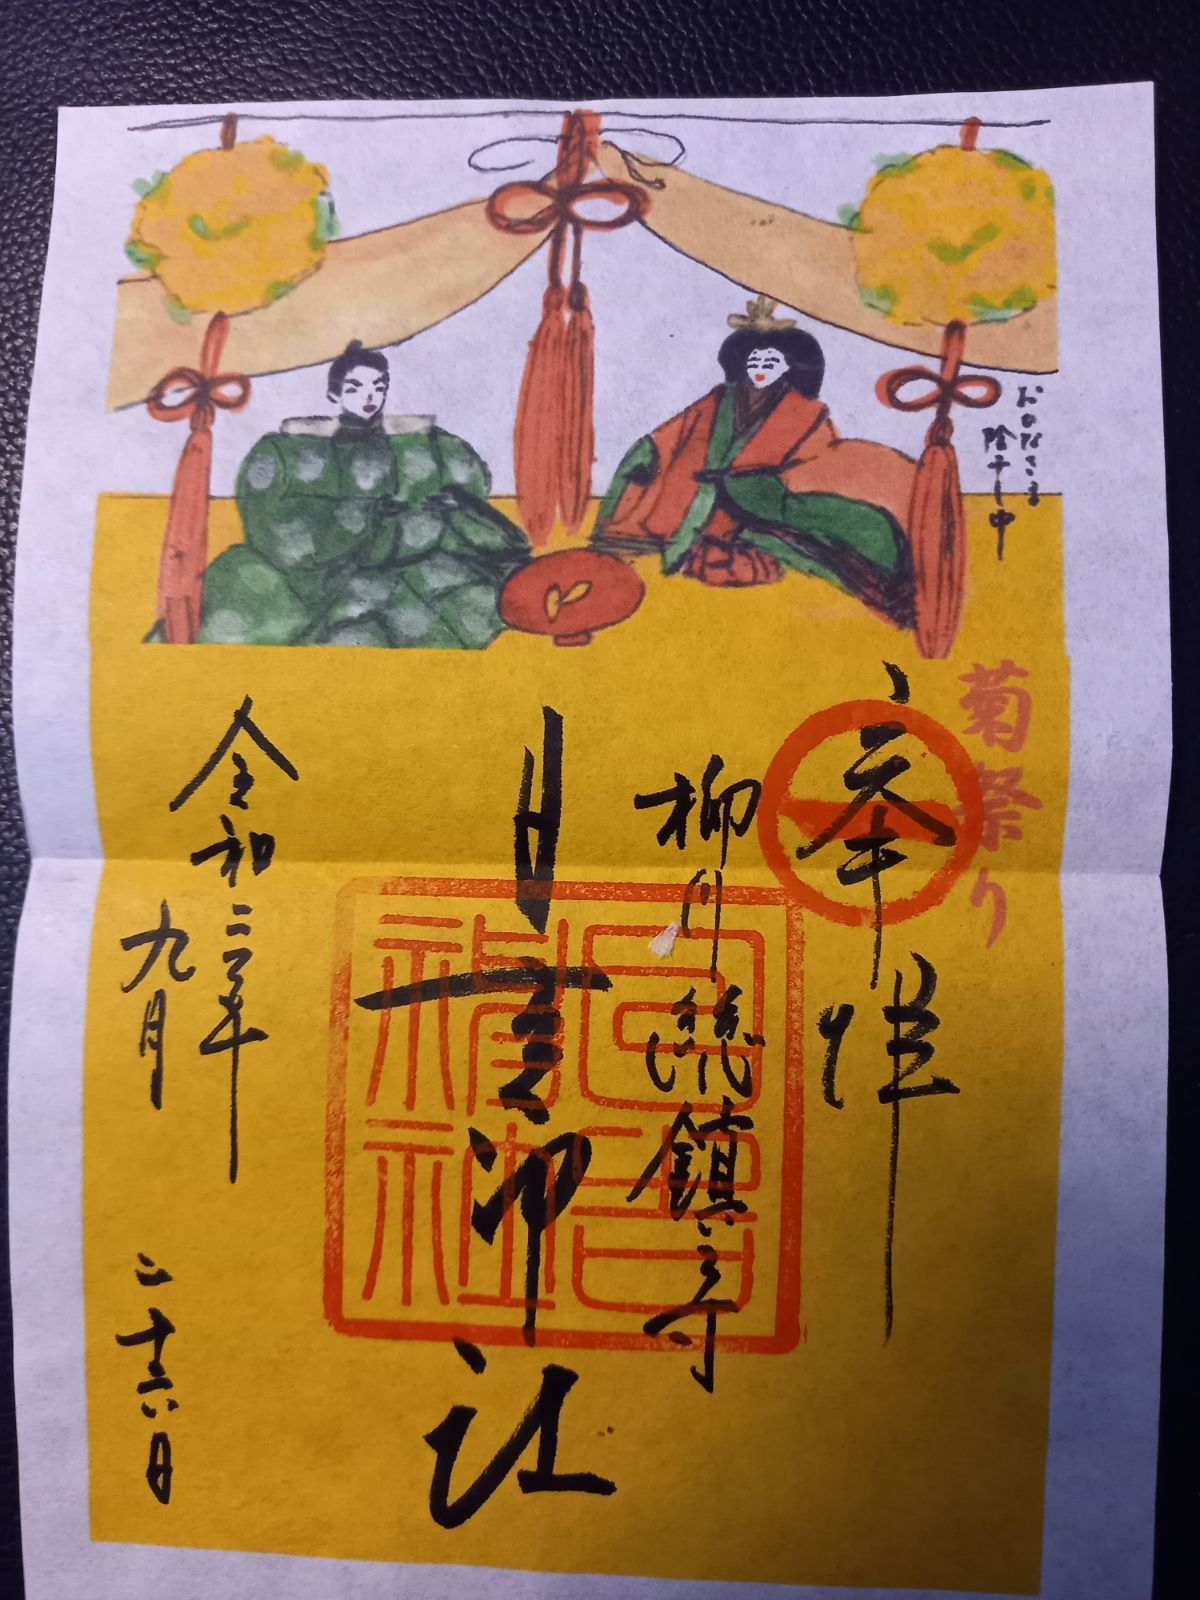 おひなさま
陰干し中
菊祭り
奉拝
柳川総鎮守
日吉神社
日吉
神社
令和三年
九月 二十六日